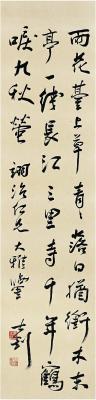 雨花臺上草青青落日猶銜木末
亭一綫長江三里寺千年鶴
唳九秋螢 仁兄大雅鑒